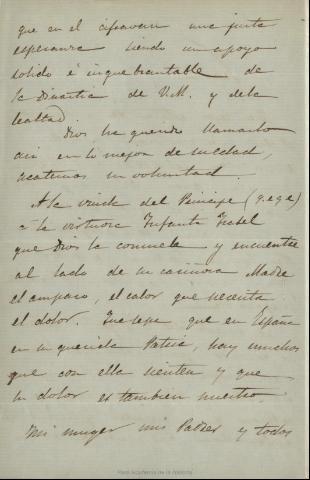 que en el cifravan una justa
esperanza siendo un apoyo
solido é inquebrantable de
la Dinastia de V.M. y de la
lealtad.
Dios ha querido llamarlo
asi en lo mejor de su edad,
acatemos su voluntad.
A la viuda del Principe (q.e.g.e)
a la virtuosa Infanta Isabel
que Dios la consuele y encuentre
al lado de su cariñosa Madre
el amparo, el calor que necesita
el dolor. Que sepa que en España
en su querida Patria, hay muchos
que con ella sienten y que
su dolor es tambien nuestro.
Mi muger mis Padres y todos
Real Academia de la Historia